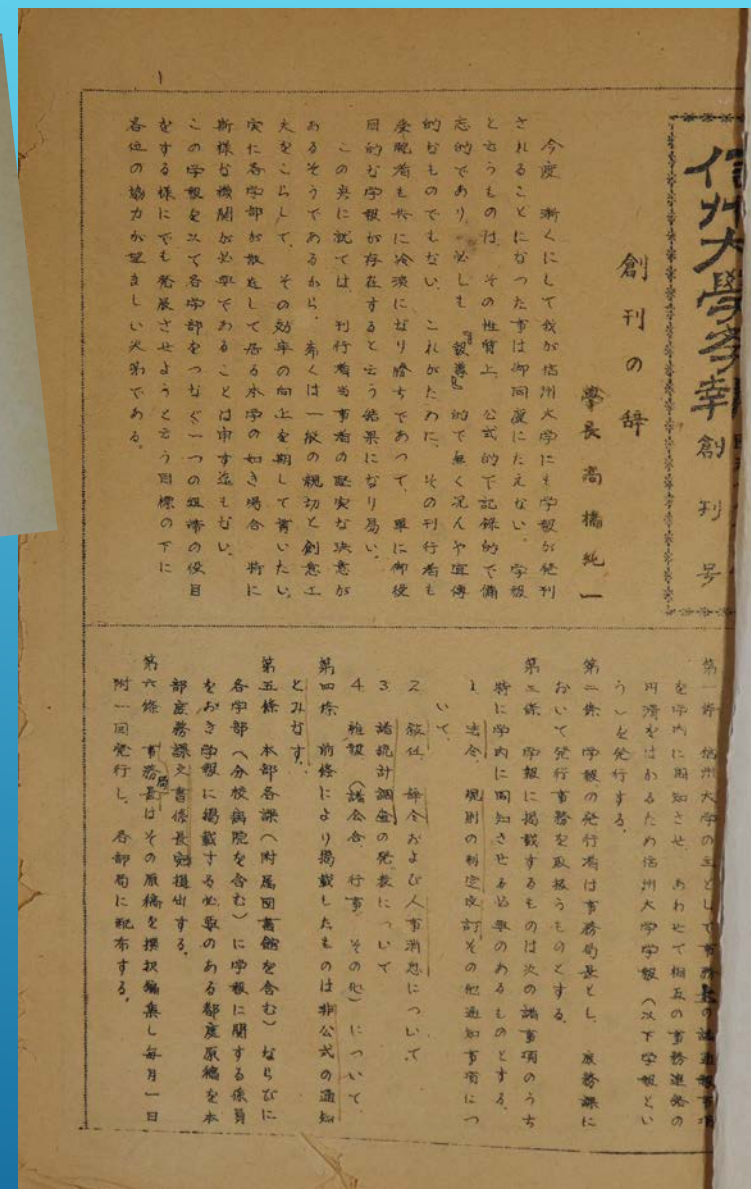 1
信州大學学報 創刊号
創刊の辞
學長 高橋純一
今度 漸くにして我が信州大学にも学報が発刊
されることになった事は御同慶にたえない。学報
と云うものは、その性質上、公式的で記録的で備
忘的であり、必しも 報導 的で無く況んや宣傳
的なものでもない、これがために、その刊行者も
受配者も共に冷淡になり勝ちであって、単に御役
目的な学報が存在すると云う結果になり易い。
この点に就ては、刊行者当事者の堅実な決意が
あるそうであるから、希くは一般の親切と創意工
夫をこらして、その効率の向上を期して貰いたい。
実に各学部が散在して居る本学の如き場合 特に
斯様な機関が必要であることは申す迄もない。
この学報を以て各学部をつなぐ一つの紐帯の役目
をする様にでも発展させようと云う目標の下に
各位の協力が望ましい次第である。
第一條 信州大学の主として事務上の諸通報事項
を学内に周知させ、あわせて相互の事務連絡の
円滑をはかるため信州大学学報（以下学報とい
う）を発行する。
第二條 学報の発行者は事務局長とし、庶務課に
おいて発行事務を取扱うものとする。
第三條 学報に掲載するものは次の諸事項のうち
特に学内に周知させる必要のあるものとする。
1 法令、規則の制定改訂、その他通知事項につ
いて、
2 叙任、辞令および人事消息について
3 諸統計調査の発表について
4 雑報（諸会合、行事、その他）について、
第四條 前條により掲載したものは非公式の通知
とみなす。
第五條 本部各課（附属図書館を含む）ならびに
各学部（分校病院を含む）に学報に関する係員
をおき学報に掲載する必要のある都度原稿を本
部庶務課文書係長宛提出する。
第六條 事務局長はその原稿を撰択編集し毎月一日
附一回発行し、各部局に配布する。